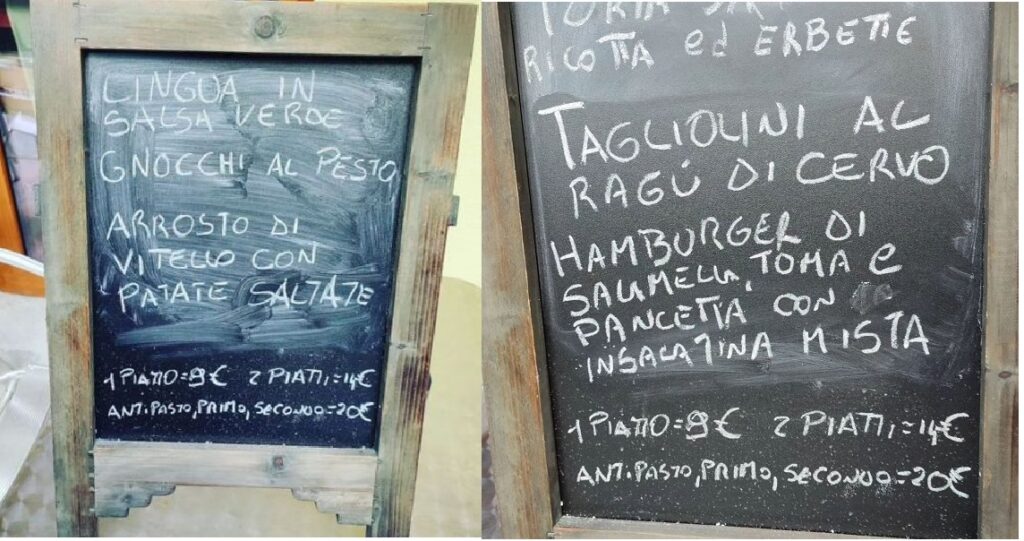 LINGUA IN
SALSA VERDE
GNOCCHI AL PESTO
ARROSTO DI
VITELLO CON
PATATE SALTATE
1 PIATTO=9€ 2 PIATTI=14€
ANTIPASTO, PRIMO, SECONDO=20€
RICOTTA ed ERBETTE
TAGLIOLINI AL
RAGÚ DI CERVO
HAMBURGER DI
SALIMELLA, TOMA e
PANCETTA CON
INSALATINA MISTA
1 PIATTO=9€ 2 PIATTI=14€
ANTIPASTO, PRIMO, SECONDO=20€